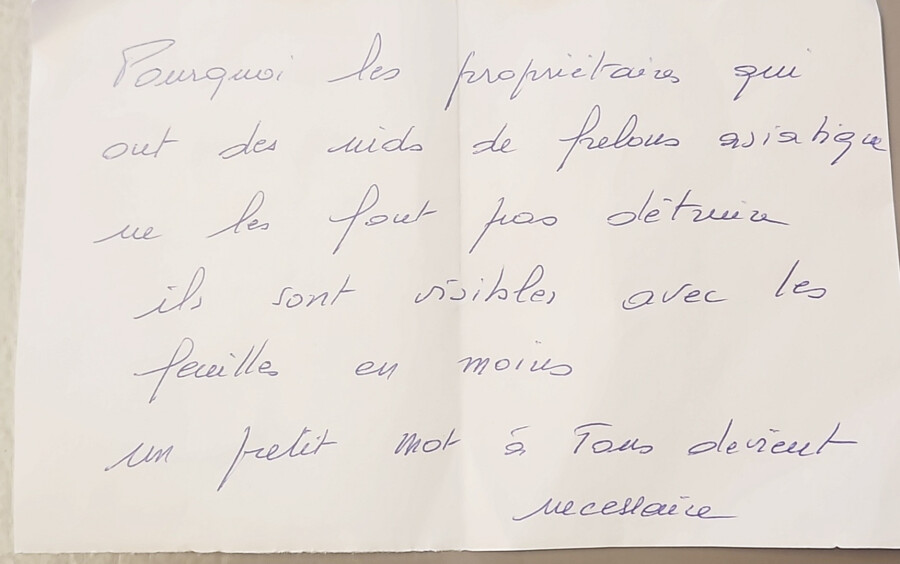 Pourquoi les propriétaires qui
ont des nids de frelons asiatique
ne les font pas détruire
ils sont visibles avec les
feuilles en moins
un petit mot à Tous devient
necessaire